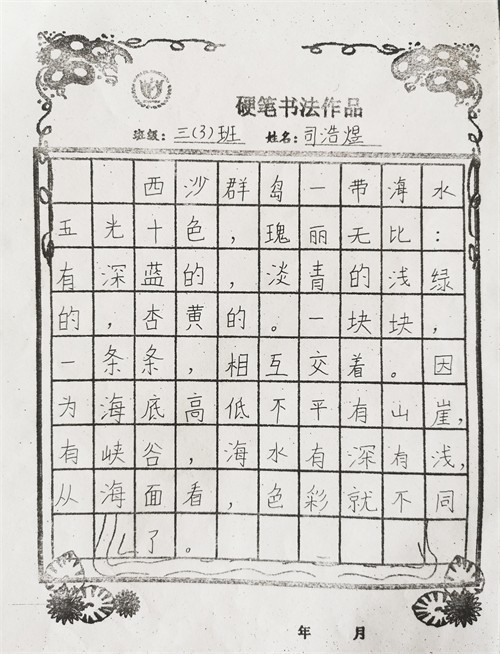 硬笔书法作品
班级：三(3)班 姓名：司浩煜
西沙群岛一带海水
五光十色，瑰丽无比：
有深蓝的，淡青的浅绿
的，杏黄的。一块块，
一条条，相互交着。因
为海底高低不平有山崖，
有峡谷，海水有深有浅，
从海面看，色彩就不同
了。
年 月